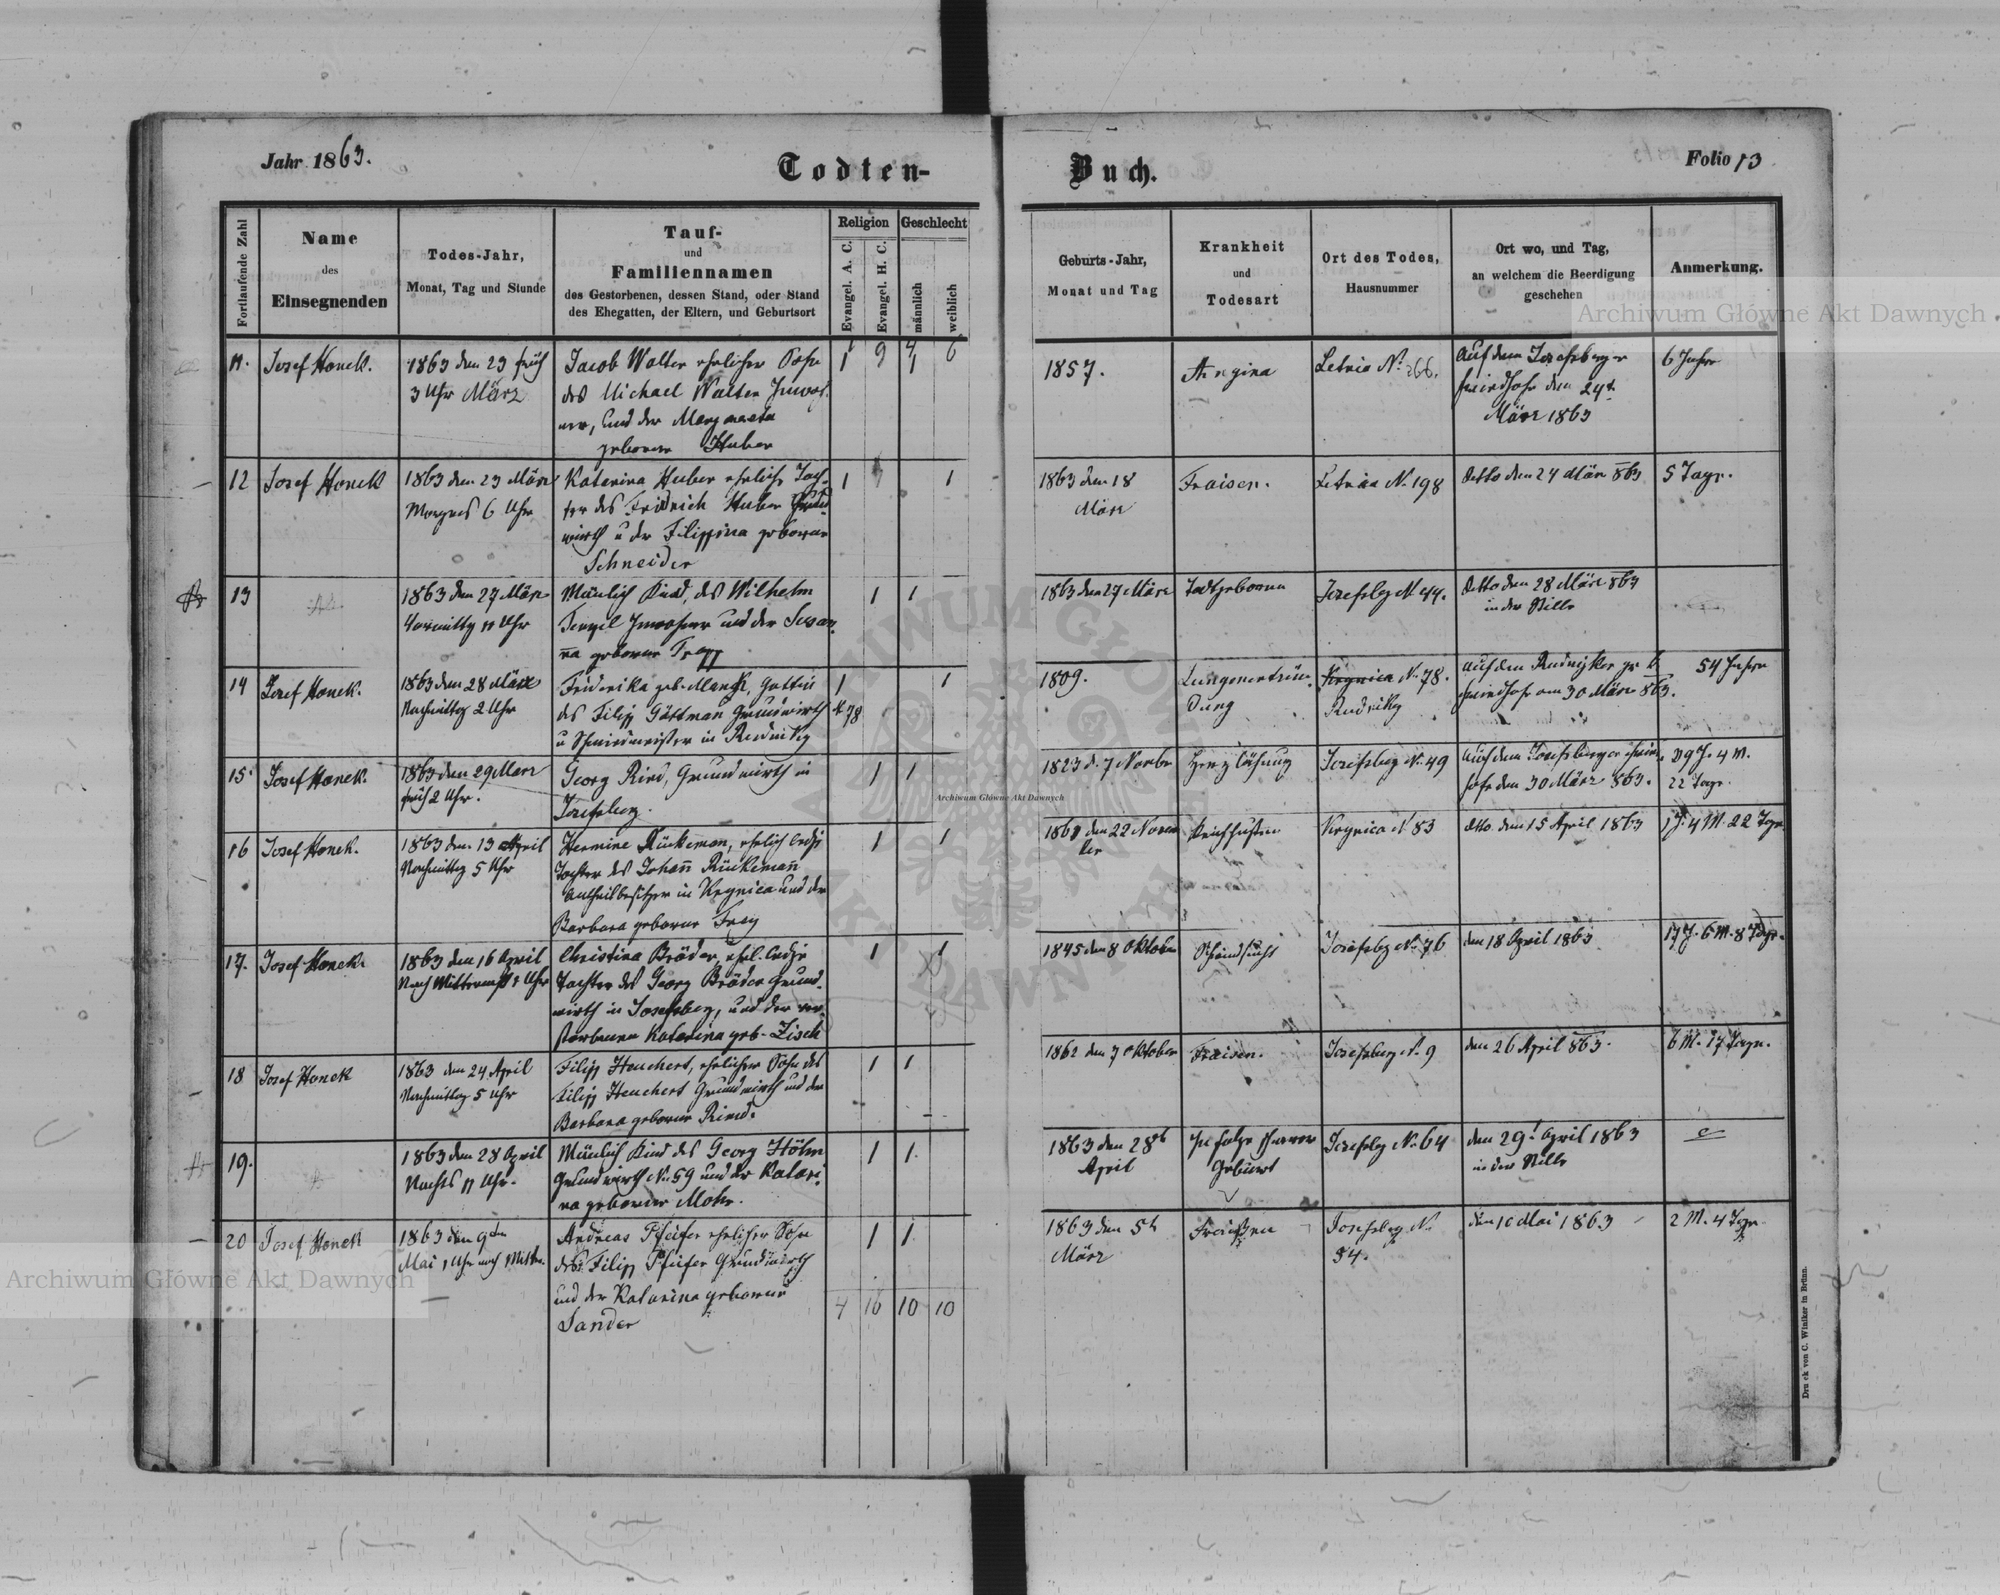 Jahr 1863.
Todten-
Buch.
Folio 13
Fortlaufende Zahl
Name
des
Einsegnenden
Todes-Jahr,
Monat, Tag und Stunde
Tauf-
und
Familiennamen
des Gestorbenen, dessen Stand, oder Stand
des Ehegatten, der Eltern, und Geburtsort
Religion
Evangel. A. C.
Evangel. H. C.
Geschlecht
männlich
weiblich
Geburts-Jahr,
Monat und Tag
Krankheit
und
Todesart
Ort des Todes,
Hausnummer
Ort wo, und Tag,
an welchem die Beerdigung
geschehen
Anmerkung.
9 4 6
11. Josef Honek.
1863 den 23 früh
3 Uhr März
Jacob Walter ehelicher Sohn
des Michael Walter Inwoh-
ner, und der Margareta
geborene Huber
1 1
1857.
Angina
Letnia N. 266.
Auf dem Josefsberger
Friedhofe den 24t
März 1863
6 Jahre
12 Josef Honek
1863 den 23 März
Morgens 6 Uhr
Katarina Huber eheliche Toch-
ter des Fridrich Huber Grund-
wirth u der Filippina geborene
Schneider
1 1
1863 den 18
März
Fraisen.
Letnia N. 198
detto den 24 März 863
5 Tage.
13
1863 den 27 März
Vormittag 11 Uhr
Mänlich Kind, des Wilhelm
Inwohner und der Susan-
na geborene
1 1
1863 den 27 März
Todtgeboren
Josefsbg N 44.
detto den 28 März 863
in der Stille
14 Josef Honek.
1863 den 28 März
Nachmittag 2 Uhr
Friderika geb. Manck, Gattin
des Filipp Gättman Grundwirth
u Schmiedmeister in Rudniky
1 1
N 78
1809.
Lungenentzün-
dung
Krynica N. 78.
Rudniky
auf dem
Friedhofe am 30 März 863.
54 Jahre
15. Josef Honek.
1863 den 29 März
früh 2 Uhr.
Georg Ried, Grundwirth in
Josefsberg.
1 1
1823 d. 7 Novbr
Herzlähmung
Josefsbg N. 49
auf dem Josefsberger Fried-
hofe den 30 März 863.
39 J. 4 M.
22 Tage.
16 Josef Honek.
1863 den 13 April
Nachmittag 5 Uhr
Hermine Rückeman, ehelich ledige
Tochter des Johañ Rückemañ
Antheilbesitzer in Krynica und der
Barbara geborene Frey
1 1
1861 den 22 Novem
ber
Keichhusten
Krynica N 83
dtto. den 15 April 1863
1 J. 4 M. 22 Tge.
17. Josef Honek.
1863 den 16 April
Christina Bräder, ehel. ledige
Tochter des Georg Bräder Grund-
wirth in Josefsberg, und der ver-
storbenen Katarina geb. Zisch
1 1
1845 den 8 Oktober
Schwindsucht
Josefsbg N. 76
den 18 April 1863
17 J. 6 M. 8 Tage.
18 Josef Honek
1863 den 24 April
Nachmittag 5 Uhr
Filipp Heuchert, ehelicher Sohn des
Filipp Heuchert Grundwirth und der
Barbara geborene Ried.
1 1
1862 den 7 Oktober
Fraisen.
Josefsberg N. 9
den 26 April 863.
6 M. 17 Tage.
19.
1863 den 28 April
Nachts 11 Uhr.
Mänlich Kind des Georg Höhn
Grundwirth N. 59 und der Katari-
na geborene Mohr.
1 1
1863 den 28
April
In folge schwerer
Geburt
Josefsbg N. 64
den 29t April 1863
in der Stille
20 Josef Honek
1863 den 9ten
Mai 1 Uhr nach Mitter.
Andreas Pfeifer ehelicher Sohn
des Filipp Pfeifer Grundwirth
und der Katarina geborene
Sander
1 1
4 16 10 10
1863 den 5t
März
Fraißen
Josefsberg N.
54.
den 10 Mai 1863
2 M. 4 Tge
Druck von C. Winiker in Brünn.
Archiwum Główne Akt Dawnych
Archiwum Główne Akt Dawnych
Archiwum Główne Akt Dawnych
ARCHIWUM GŁÓWNE
AKT DAWNYCH